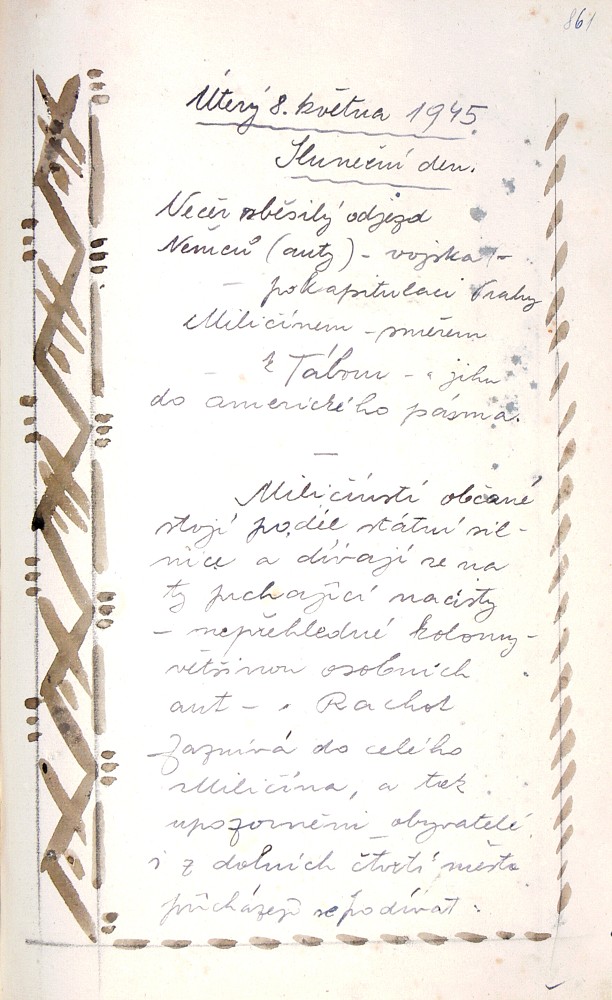 861
Úterý 8. května 1945.
Sluneční den.
Večer zběsilý odjezd
Němců (auty) - vojska -
- po kapitulaci Prahy
Miličínem - směrem
k Táboru - jihu
do amerického pásma.
—
Miličínstí občané
stojí podél státní sil-
nice a dívají se na
ty prchající nacisty
- nepřehledné kolony -
většinou osobních
aut - . Rachot
zaznívá do celého
Miličína, a tak
upozorněni obyvatelé
i z dolních čtvrtí města
přicházejí se podívat.